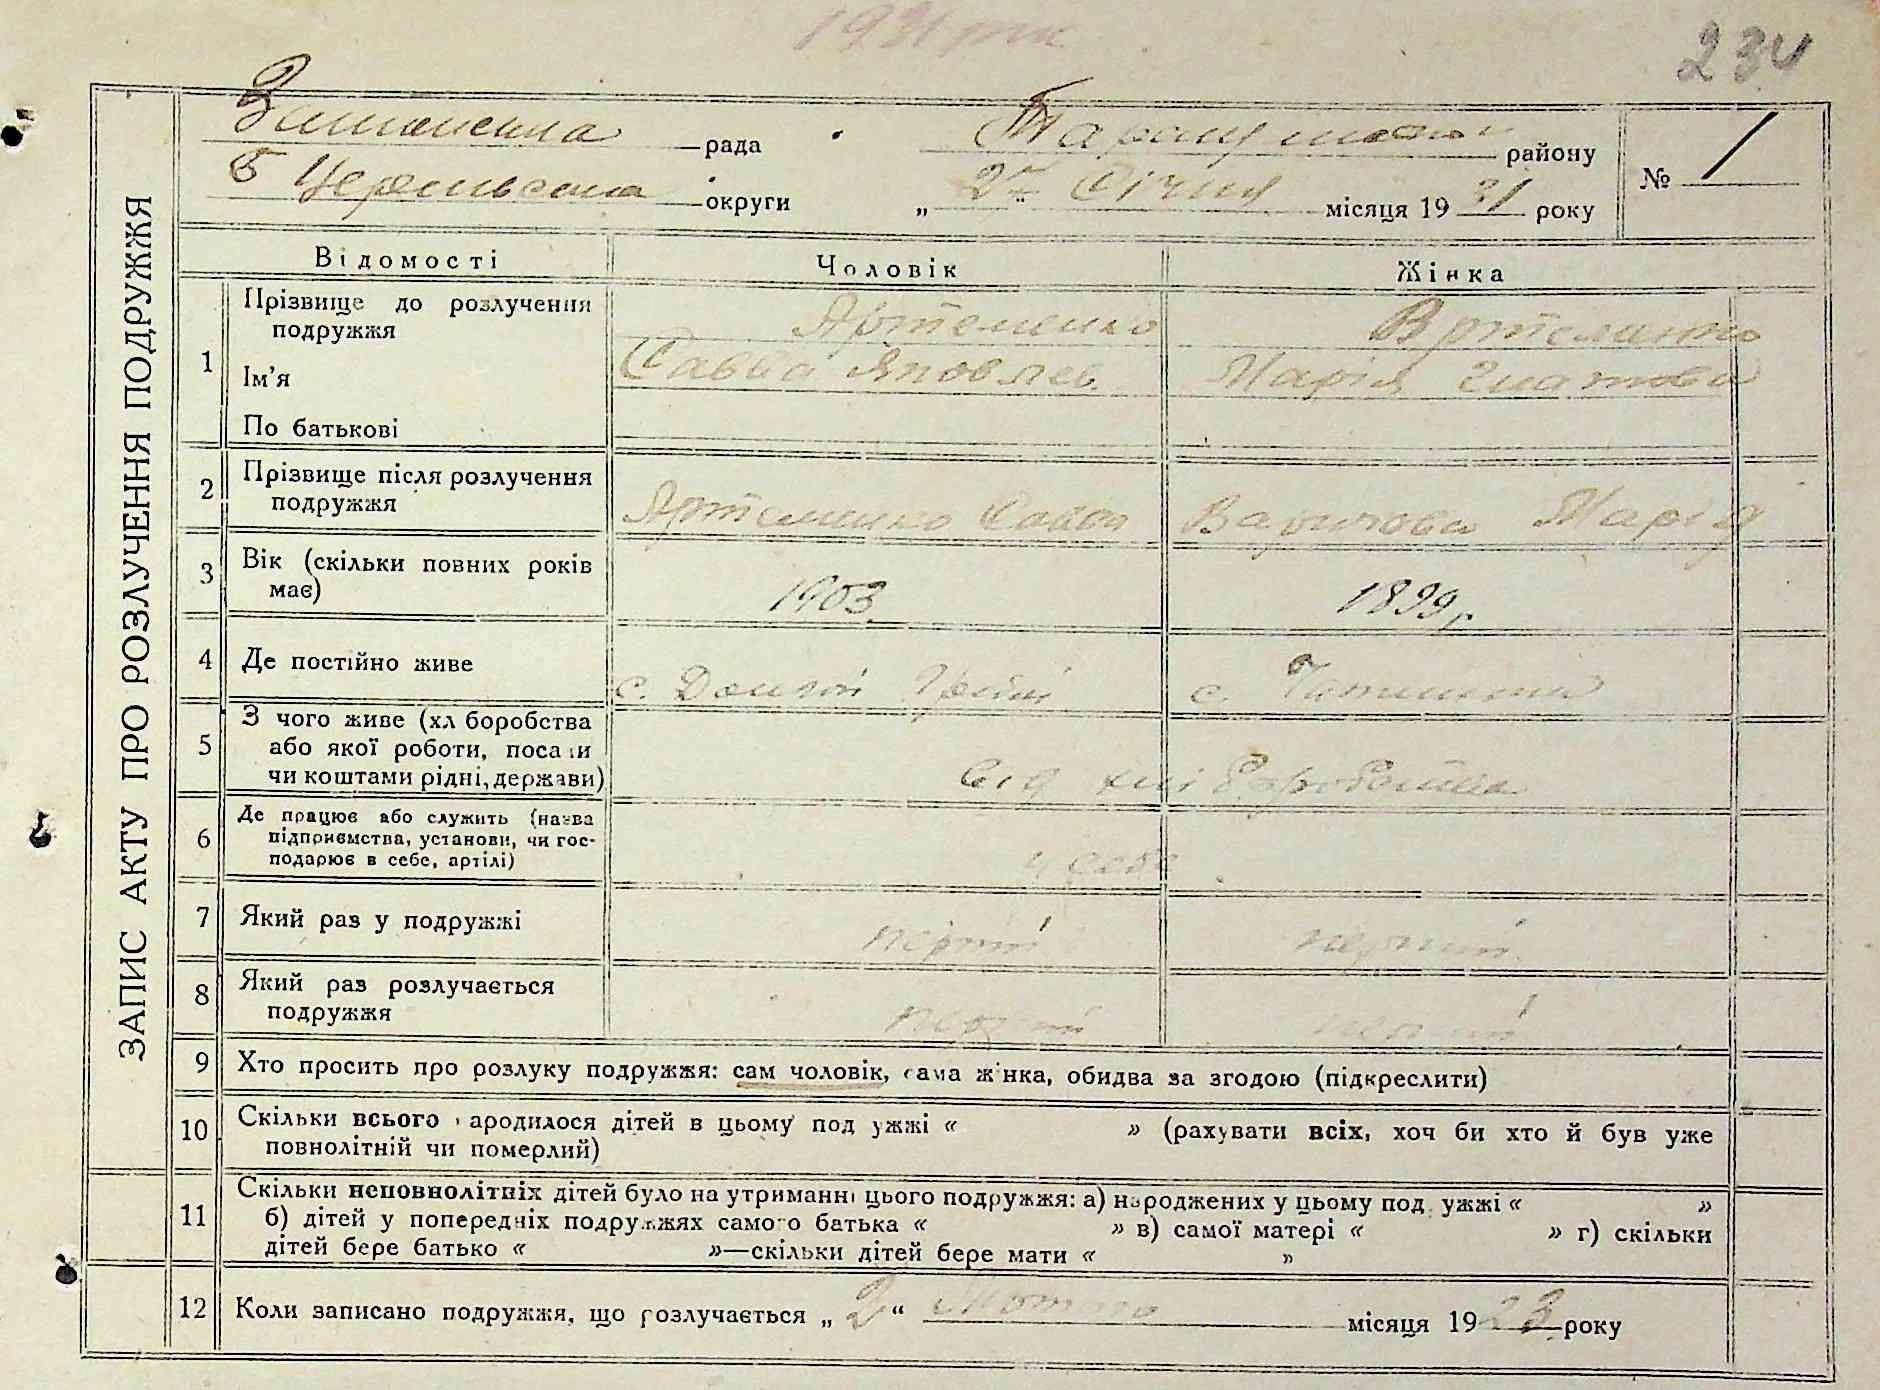 1931 рік
234
ЗАПИС АКТУ ПРО РОЗЛУЧЕННЯ ПОДРУЖЖЯ
рада району
Б Церківська округи „ 2 “ Січня місяця 19 31 року
№ 1
Відомості Чоловік Жінка
1 Прізвище до розлучення подружжя Артеменко Артеменко
Ім'я Савва Яковлев. Марія Гнатова
По батькові
2 Прізвище після розлучення подружжя Артеменко Савва Марія
3 Вік (скільки повних років має) 1903 1899 р.
4 Де постійно живе с. с.
5 З чого живе (хліборобства або якої роботи, посади чи коштами рідні, держави) від хліборобства
6 Де працює або служить (назва підприємства, установи, чи господарює в себе, артілі) у себе
7 Який раз у подружжі перший перший
8 Який раз розлучається подружжя перший перший
9 Хто просить про розлуку подружжя: сам чоловік, сама жінка, обидва за згодою (підкреслити)
10 Скільки всього народилося дітей в цьому подружжі « » (рахувати всіх, хоч би хто й був уже
повнолітній чи померлий)
11 Скільки неповнолітніх дітей було на утриманні цього подружжя: а) народжених у цьому подружжі « »
б) дітей у попередніх подружжях самого батька « » в) самої матері « » г) скільки
дітей бере батько « »—скільки дітей бере мати « »
12 Коли записано подружжя, що розлучається „ 2 “ Лютого місяця 19 23 року